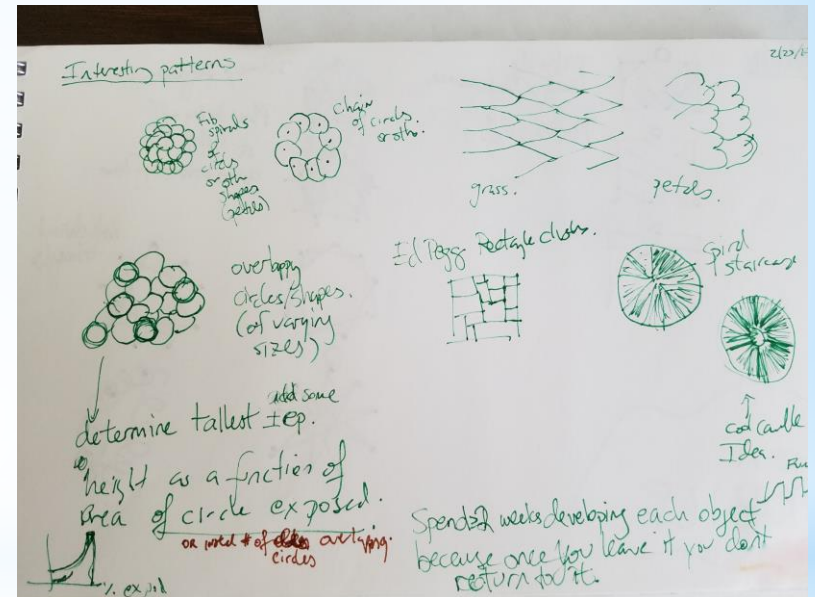 Interesting patterns
Fib
spirals
of
circles
or oth
shapes
(petals)
chain
of circles
or oth.
grass.
petals.
overlappy
circles/shapes.
(of varying
sizes)
Ed Pegg Rectangle
spiral
staircase
add some
determine tallest ±ep.
height as a function of
area of circle exposed.
or # of overlying.
circles
%
candle
Idea.
weeks developing each object
because once you leave it you dont
return to it.